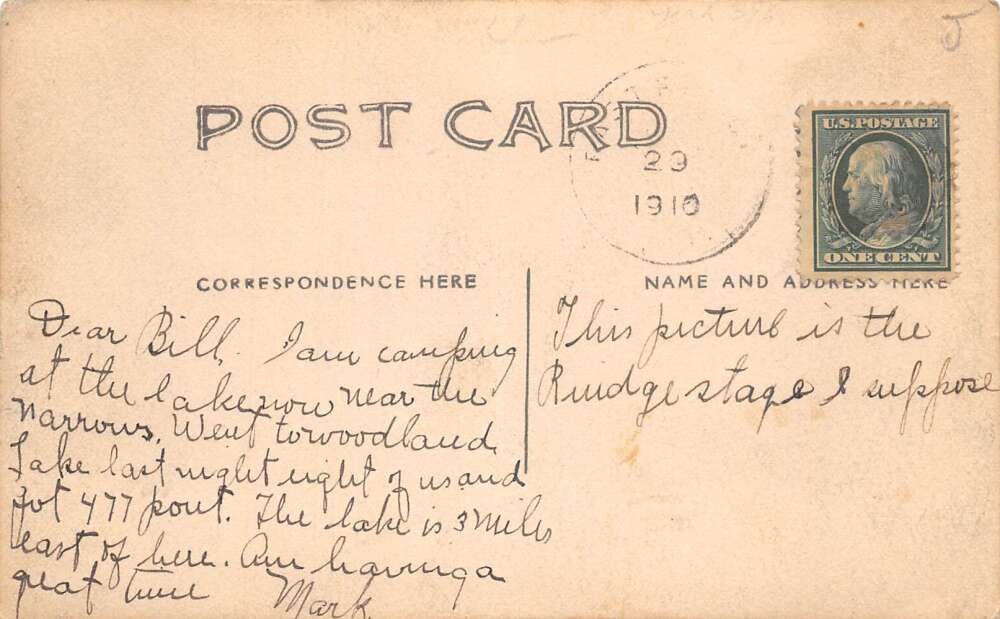 POST CARD
29
1910
U.S. POSTAGE
ONE CENT
CORRESPONDENCE HERE
NAME AND ADDRESS HERE
Dear Bill. I am camping
at the lake now near the
narrows. Went to woodland
Lake last night eight of us and
got 477 pout. The lake is 3 miles
east of here. Am having a
great time
Mark
This picture is the
Rindge stage I suppose